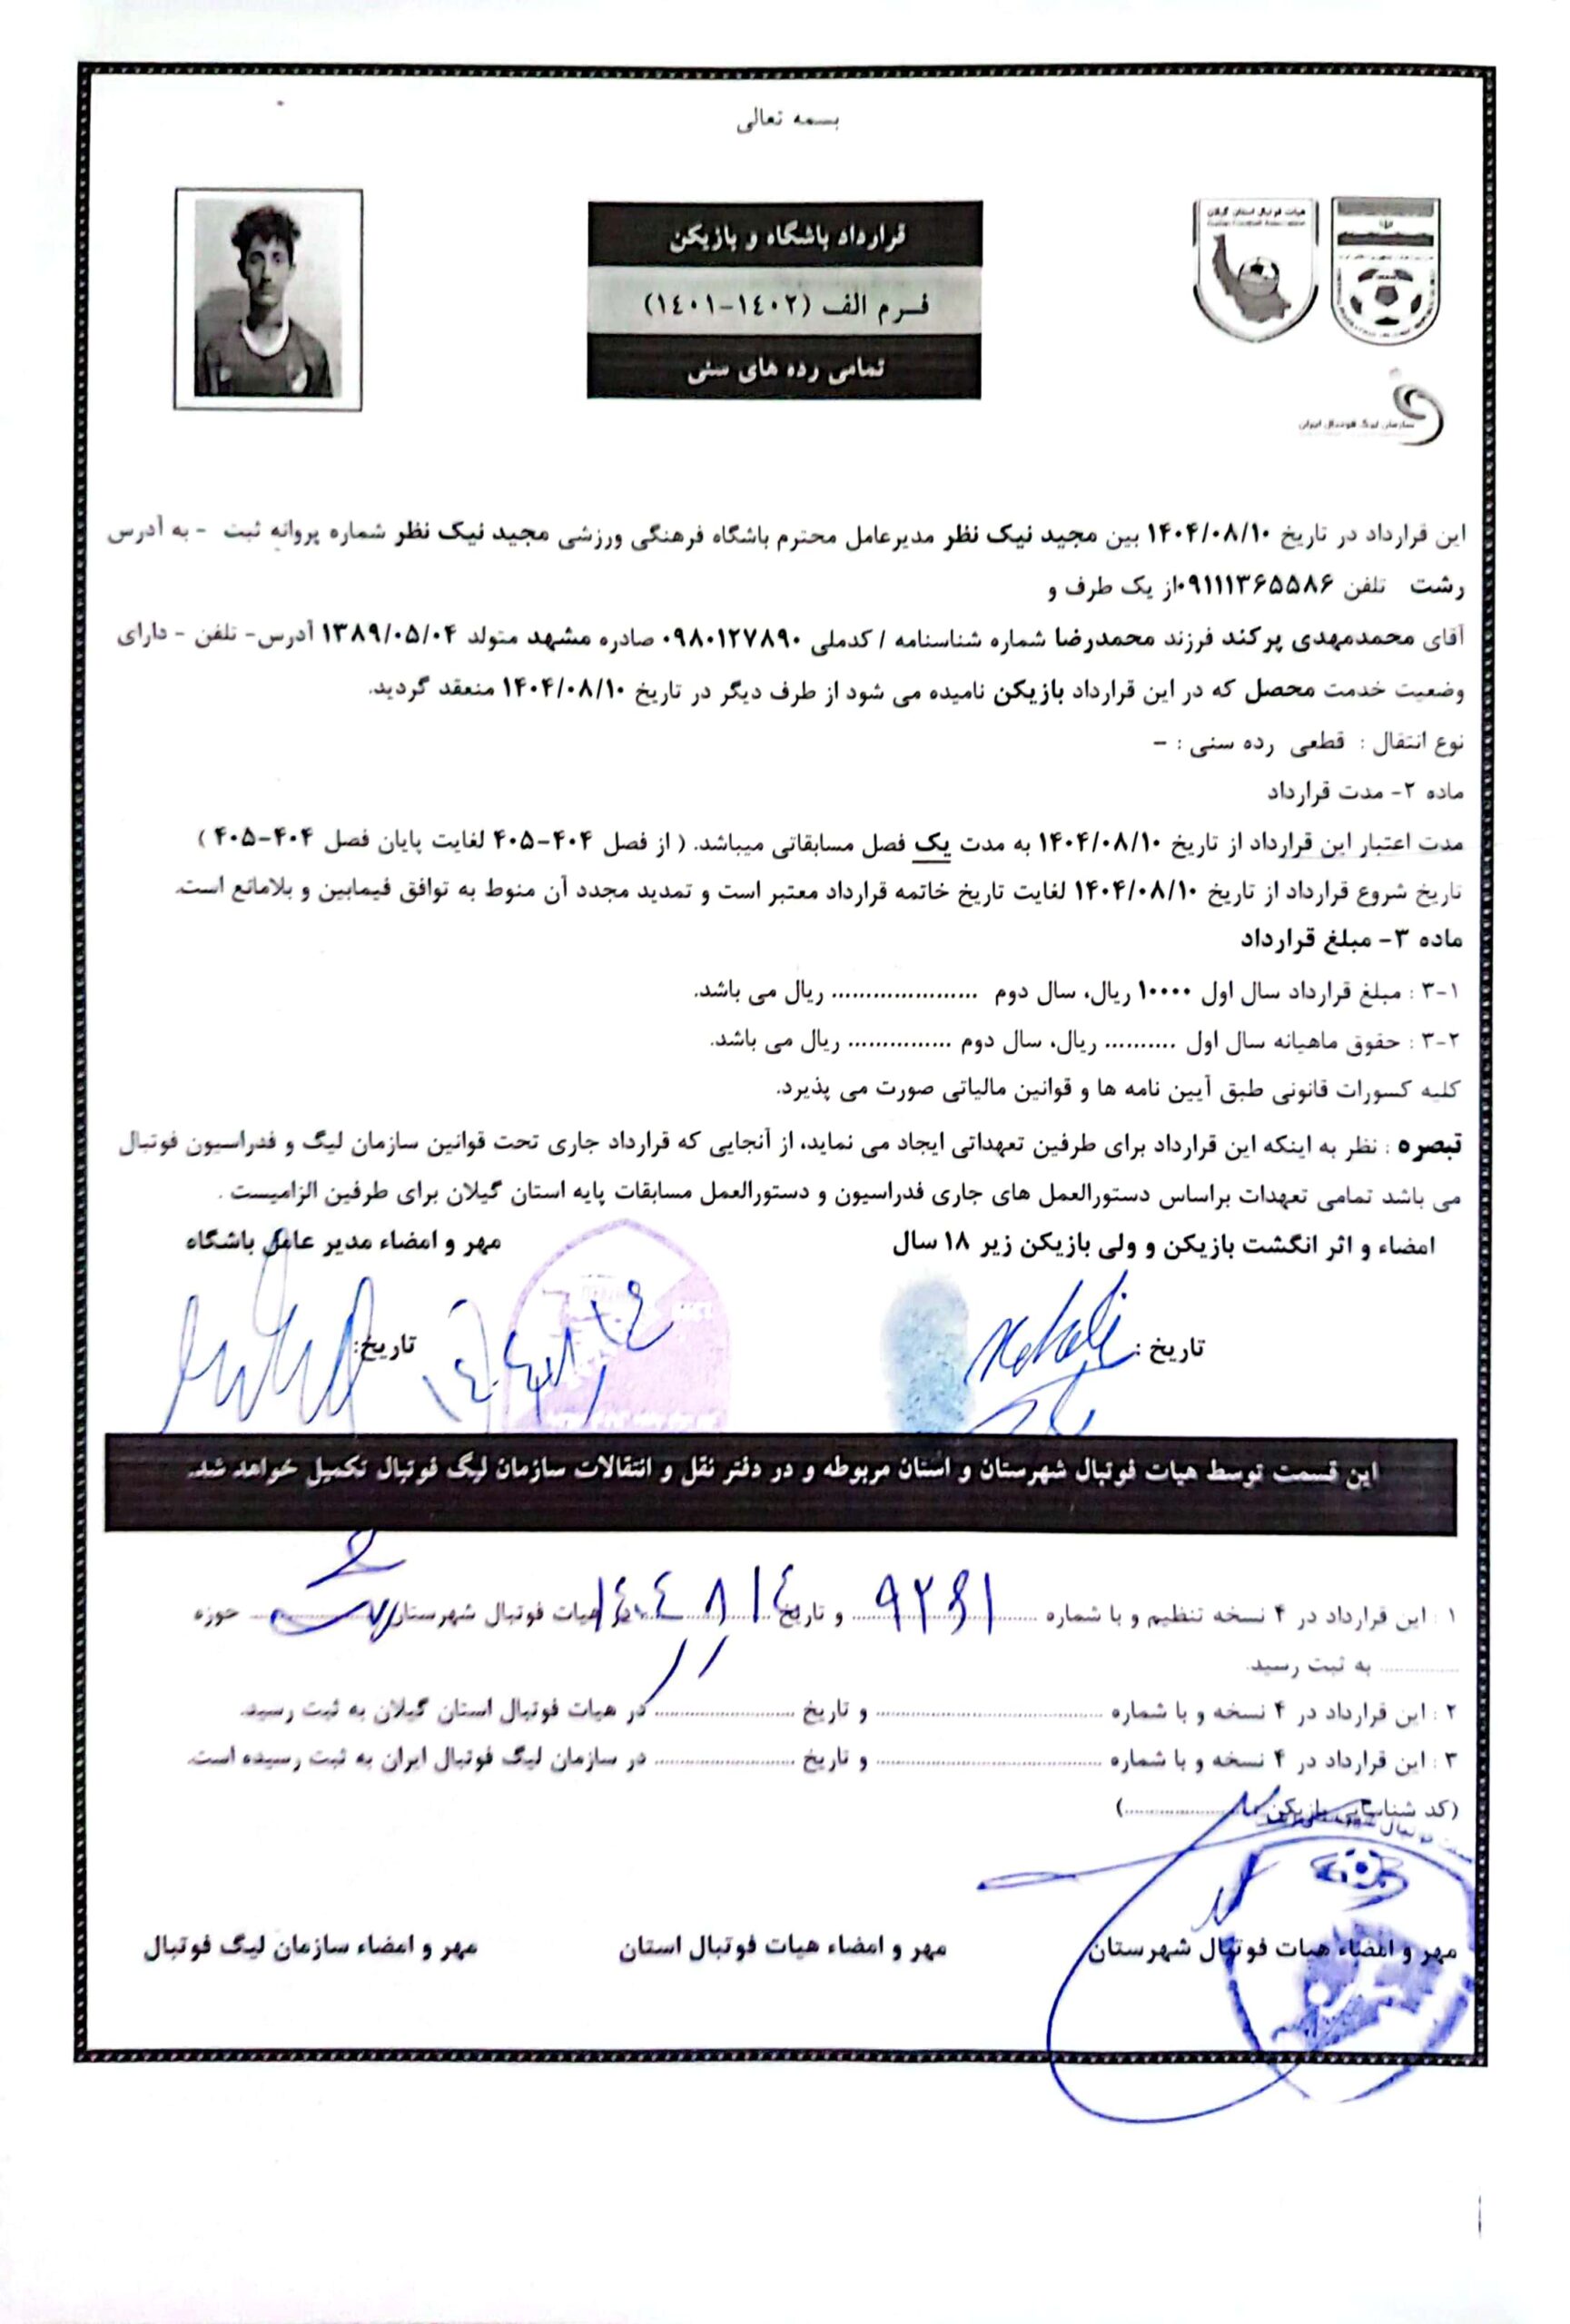 بسمه تعالی
هیات فوتبال استان گیلان
قرارداد باشگاه و بازیکن
فرم الف (١٤٠٢-١٤٠١)
تمامی رده های سنی
سازمان لیگ فوتبال ایران
این قرارداد در تاریخ ۱۴۰۴/۰۸/۱۰ بین مجید نیک نظر مدیرعامل محترم باشگاه فرهنگی ورزشی مجید نیک نظر شماره پروانه ثبت - به آدرس
رشت تلفن ۰۹۱۱۱۳۶۵۵۸۶از یک طرف و
آقای محمدمهدی پرکند فرزند محمدرضا شماره شناسنامه / کدملی ۰۹۸۰۱۲۷۸۹۰ صادره مشهد متولد ۱۳۸۹/۰۵/۰۴ آدرس- تلفن - دارای
وضعیت خدمت محصل که در این قرارداد بازیکن نامیده می شود از طرف دیگر در تاریخ ۱۴۰۴/۰۸/۱۰ منعقد گردید.
نوع انتقال : قطعی رده سنی : -
ماده ۲- مدت قرارداد
مدت اعتبار این قرارداد از تاریخ ۱۴۰۴/۰۸/۱۰ به مدت یک فصل مسابقاتی میباشد. ( از فصل ۴۰۴-۴۰۵ لغایت پایان فصل ۴۰۴-۴۰۵ )
تاریخ شروع قرارداد از تاریخ ۱۴۰۴/۰۸/۱۰ لغایت تاریخ خاتمه قرارداد معتبر است و تمدید مجدد آن منوط به توافق فیمابین و بلامانع است.
ماده ۳- مبلغ قرارداد
۳-۱ : مبلغ قرارداد سال اول ۱۰۰۰۰ ریال، سال دوم ..................... ریال می باشد.
۳-۲ : حقوق ماهیانه سال اول .......... ریال، سال دوم ............... ریال می باشد.
کلیه کسورات قانونی طبق آیین نامه ها و قوانین مالیاتی صورت می پذیرد.
تبصره : نظر به اینکه این قرارداد برای طرفین تعهداتی ایجاد می نماید، از آنجایی که قرارداد جاری تحت قوانین سازمان لیگ و فدراسیون فوتبال
می باشد تمامی تعهدات براساس دستورالعمل های جاری فدراسیون و دستورالعمل مسابقات پایه استان گیلان برای طرفین الزامیست .
امضاء و اثر انگشت بازیکن و ولی بازیکن زیر ۱۸ سال
مهر و امضاء مدیر عامل باشگاه
تاریخ :
تاریخ:
این قسمت توسط هیات فوتبال شهرستان و استان مربوطه و در دفتر نقل و انتقالات سازمان لیگ فوتبال تکمیل خواهد شد.
۱ : این قرارداد در ۴ نسخه تنظیم و با شماره .......... و تاریخ .......... در هیات فوتبال شهرستان .......... حوزه
.......... به ثبت رسید.
۲ : این قرارداد در ۴ نسخه و با شماره .......... و تاریخ .......... در هیات فوتبال استان گیلان به ثبت رسید.
۳ : این قرارداد در ۴ نسخه و با شماره .......... و تاریخ .......... در سازمان لیگ فوتبال ایران به ثبت رسیده است.
(کد شناسایی بازیکن ..........)
مهر و امضاء هیات فوتبال شهرستان
مهر و امضاء هیات فوتبال استان
مهر و امضاء سازمان لیگ فوتبال